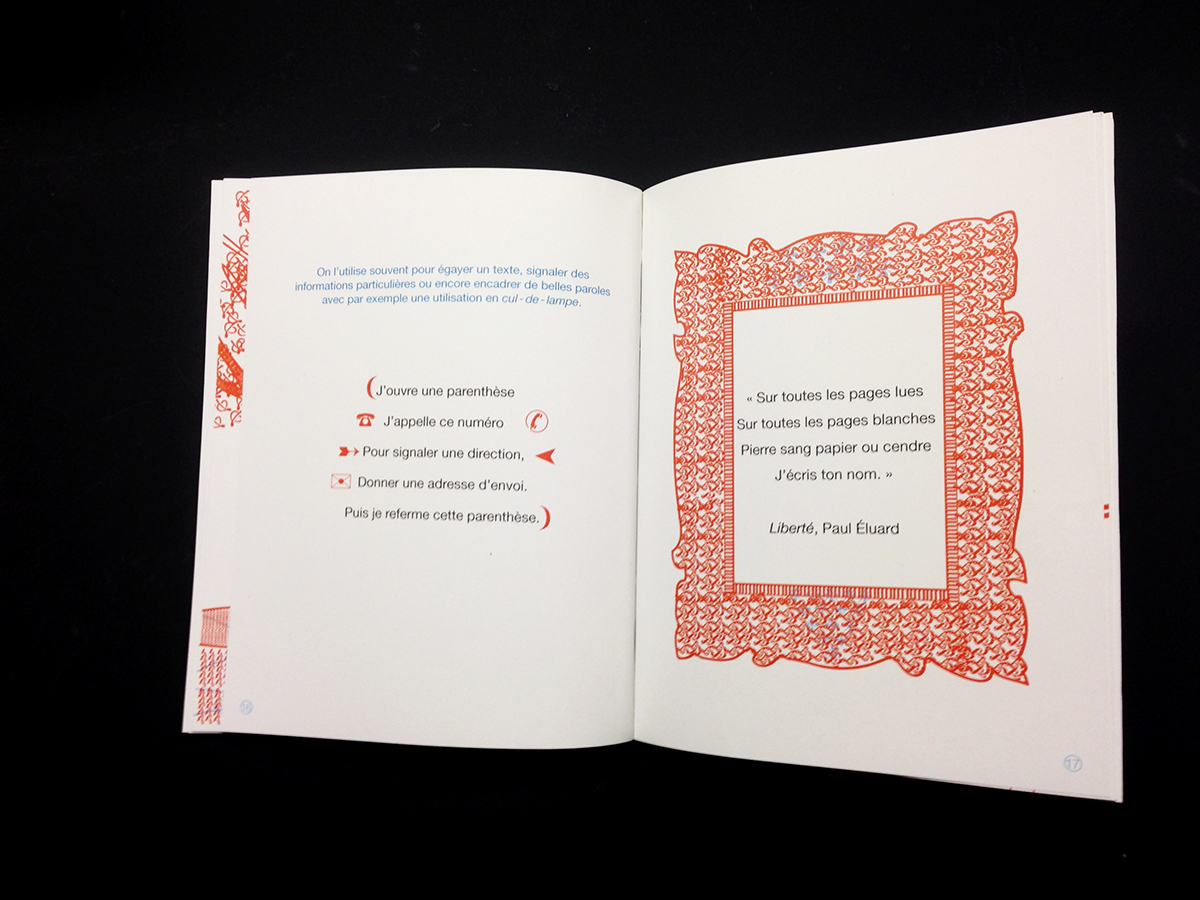 On l'utilise souvent pour égayer un texte, signaler des
informations particulières ou encore encadrer de belles paroles
avec par exemple une utilisation en cul-de-lampe.
(J'ouvre une parenthèse
J'appelle ce numéro
Pour signaler une direction,
Donner une adresse d'envoi.
Puis je referme cette parenthèse.)
16
« Sur toutes les pages lues
Sur toutes les pages blanches
Pierre sang papier ou cendre
J'écris ton nom. »
Liberté, Paul Éluard
17